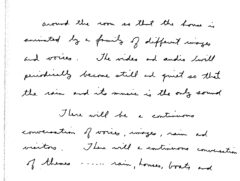 around the room so that the house is
animated by a family of different images
and voices. The video and audio will
periodically become still and quiet so that
the rain and its music is the only sound
There will be a continuous
conversation of voices, images, rain and
visitors. There will a continuous conversation
of themes ...... rain, houses, boats and